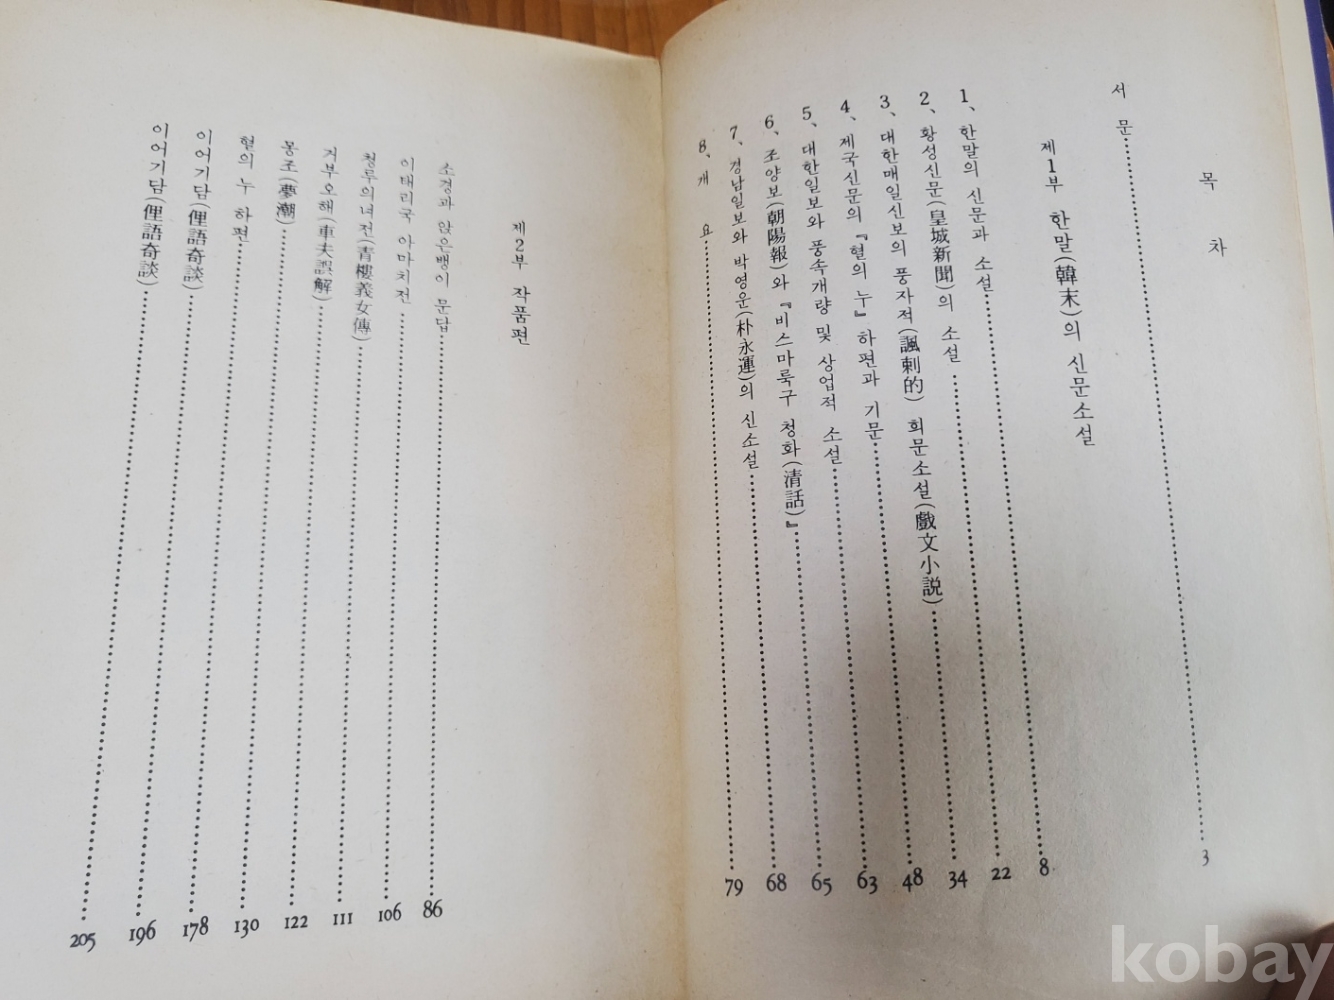 목 차
서 문 3
제1부 한말(韓末)의 신문소설
1、한말의 신문과 소설 8
2、황성신문(皇城新聞)의 소설 22
3、대한매일신보의 풍자적(諷刺的) 희문소설(戲文小説) 34
4、제국신문의 『혈의 누』 하편과 기문 48
5、대한일보와 풍속개량 및 상업적 소설 63
6、조양보(朝陽報)와 『비스마룩구 청화(清話)』 65
7、경남일보와 박영운(朴永運)의 신소설 68
8、개 요 79
제2부 작품편
소경과 앉은뱅이 문답 86
이태리국 아마치전 106
청루의녀전(青樓義女傳) 111
거부오해(車夫誤解) 122
몽조(夢潮) 130
혈의 누 하편 178
이어기담(俚語奇談) 196
이어기담(俚語奇談) 205
kobay